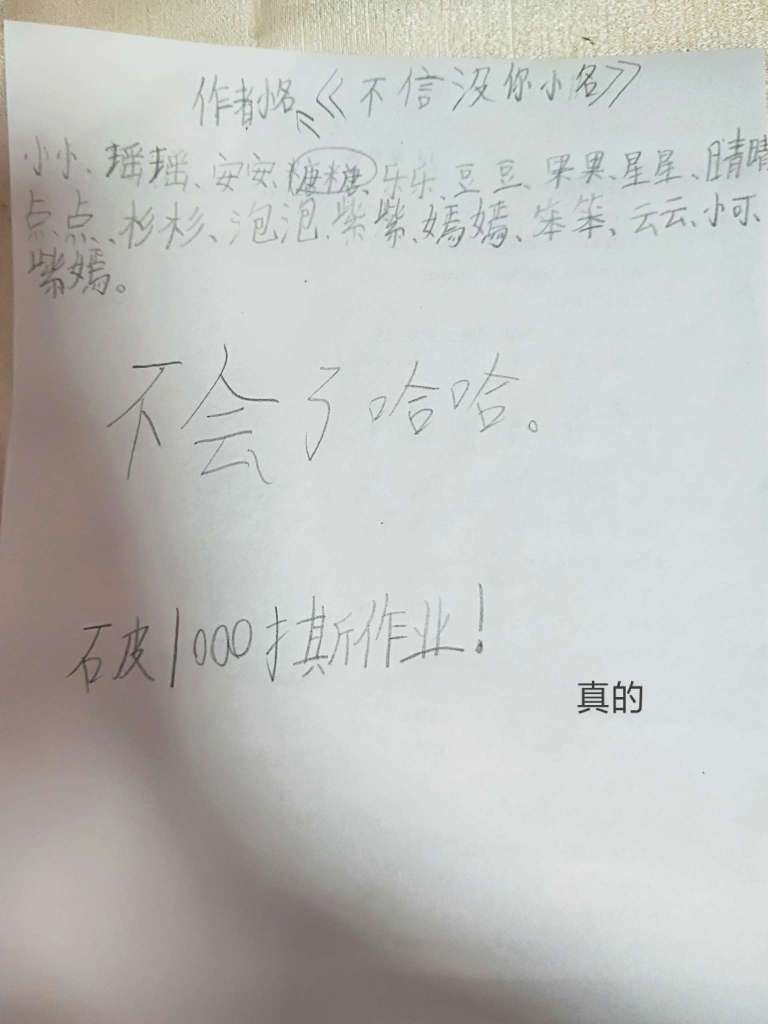 作者小名《不信没你小名》
小小、瑶瑶、安安、糖糖、乐乐、豆豆、果果、星星、晴晴
点点、杉杉、泡泡、紫紫、嫣嫣、笨笨、云云、小可、
紫嫣。
不会了哈哈。
破1000撕作业!
真的